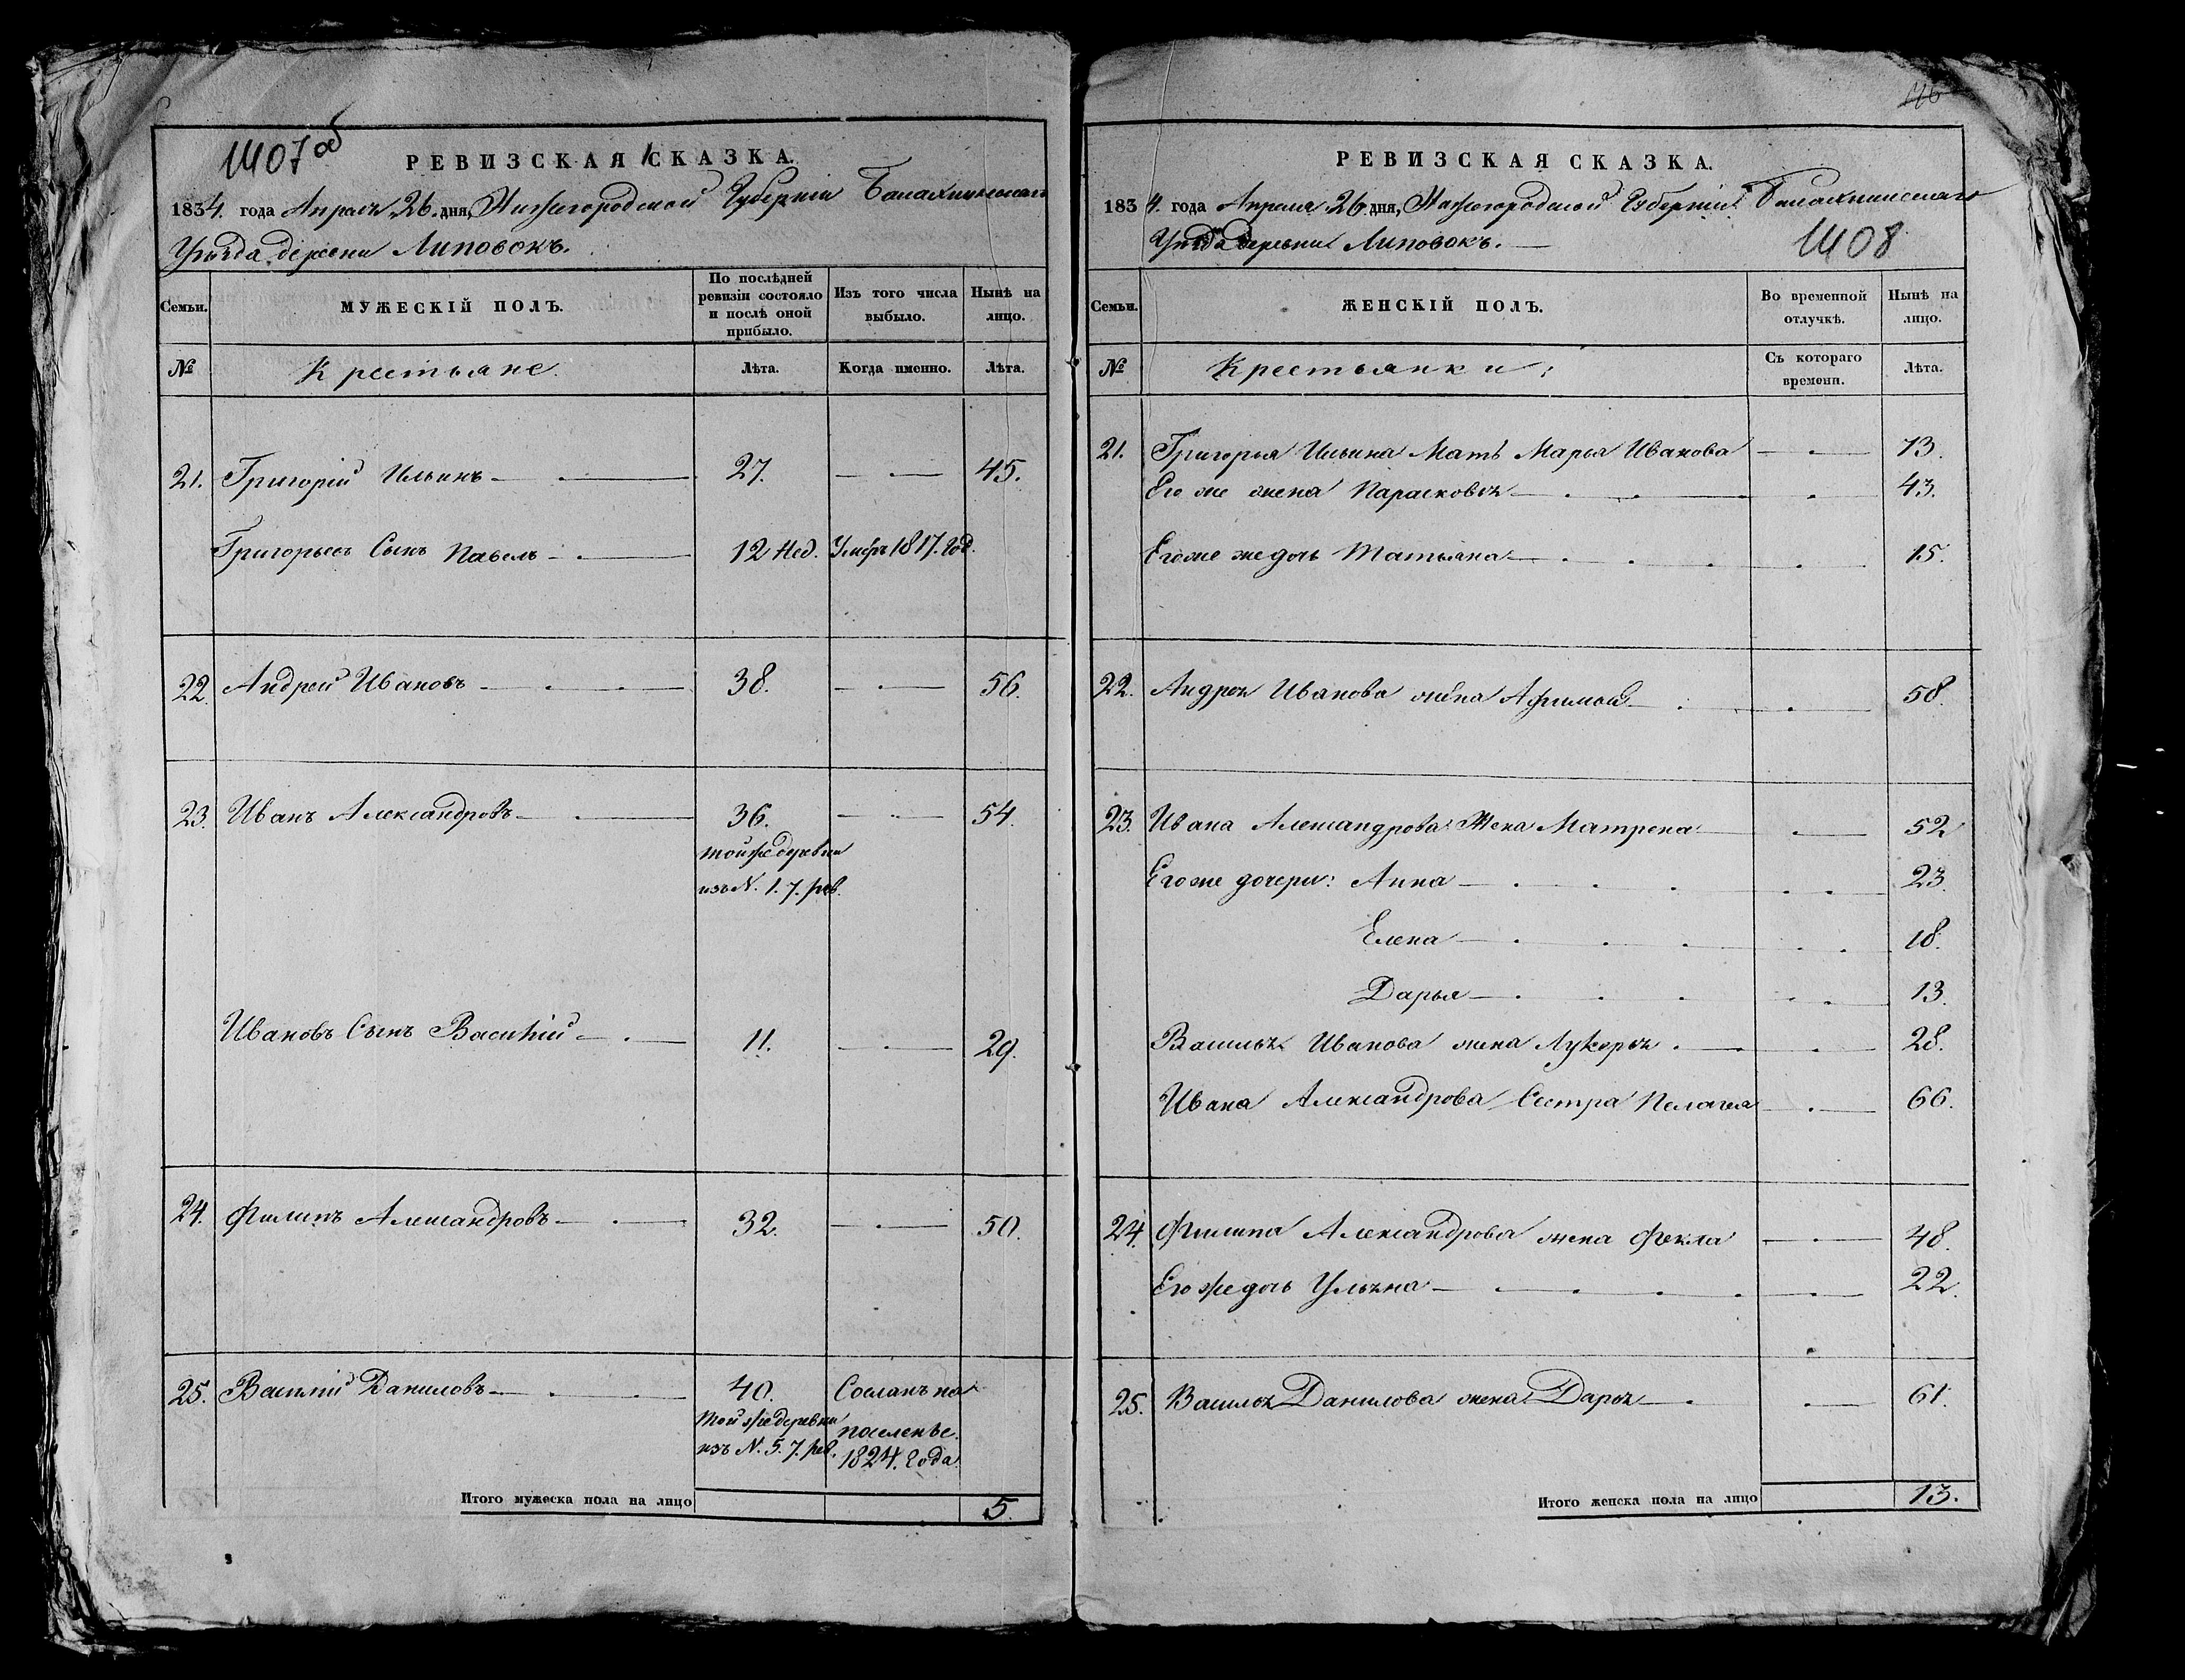 1407 об
РЕВИЗСКАЯ СКАЗКА.
1834. года Апреля 26. дня, Нижегородской Губернiи Балахнинскаго
Уѣзда деревни Липовокъ.
Семьи.
МУЖЕСКIЙ ПОЛЪ.
По послѣдней ревизiи состояло и послѣ оной прибыло.
Изъ того числа выбыло.
Нынѣ на лицо.
№
Крестьяне.
Лѣта.
Когда именно.
Лѣта.
21. Григорiй Ильинъ 27. 45.
Григорьевъ Сынъ Павелъ 12 Нед. Умеръ 1817. год.
22. Андрей Ивановъ 38. 56.
23. Иванъ Александровъ 36. 54.
той же деревни
изъ N. 1. 7. рев.
Ивановъ Сынъ Василiй 11. 29.
24. Филипъ Александровъ 32. 50.
25. Василiй Даниловъ 40. Сосланъ на
той же деревни поселенье.
изъ N. 5. 7. рев. 1824. Года
Итого мужеска пола на лицо 5.
146
РЕВИЗСКАЯ СКАЗКА.
1834. года Апреля 26 дня, Нижегородской Губернiи Балахнинскаго
Уѣзда деревни Липовокъ.
1408
Семьи.
ЖЕНСКIЙ ПОЛЪ.
Во временной отлучкѣ.
Нынѣ на лицо.
№
Крестьянки:
Съ котораго времени.
Лѣта.
21. Григорья Ильина Мать Марья Иванова 73.
Его же жена Парасковья 43.
Егоже же дочь Татьяна 15.
22. Андрея Иванова жена Афимья 58.
23. Ивана Александрова Жена Матрена 52
Его же дочери: Анна 23
Елена 18.
Дарья 13.
Василья Иванова жена Лукерья 28.
Ивана Александрова Сестра Пелагея 66.
24. Филипа Александрова жена Фекла 48.
Его же дочь Ульяна 22.
25. Василья Данилова жена Дарья 61.
Итого женска пола на лицо 13.